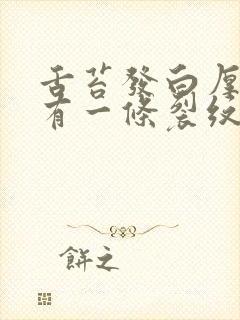 舌苔發白厚
有一條裂紋
餅之